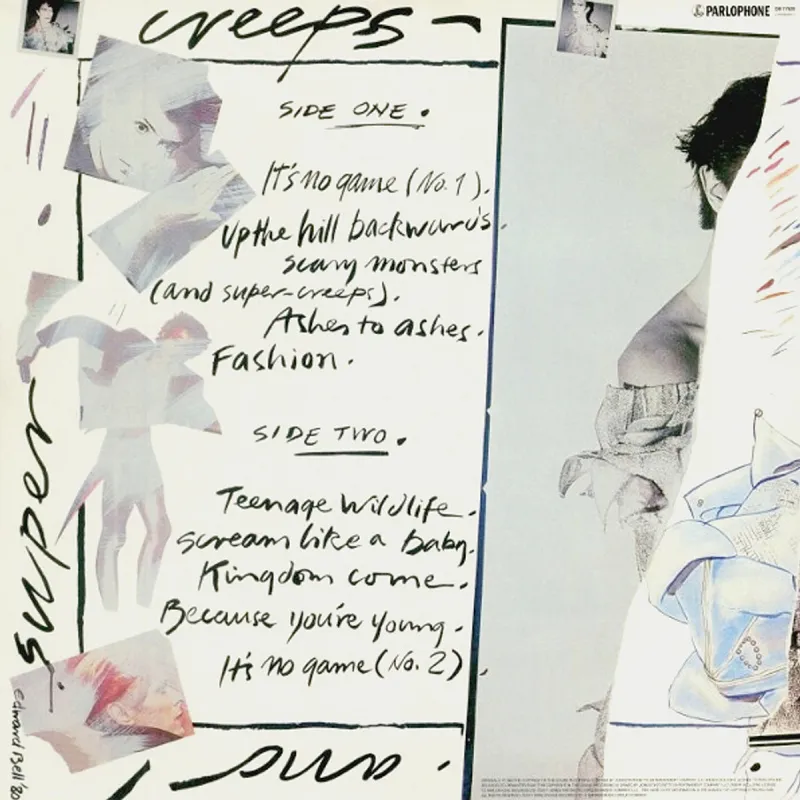 creeps-
PARLOPHONE
SIDE ONE.
It's no game (No. 1).
Up the hill backwards.
scary monsters
(and super-creeps).
Ashes to ashes.
Fashion.
SIDE TWO.
Teenage Wildlife.
scream like a Baby.
Kingdom come.
Because you're young.
It's no game (No. 2).
super
Edward Bell '80
and.